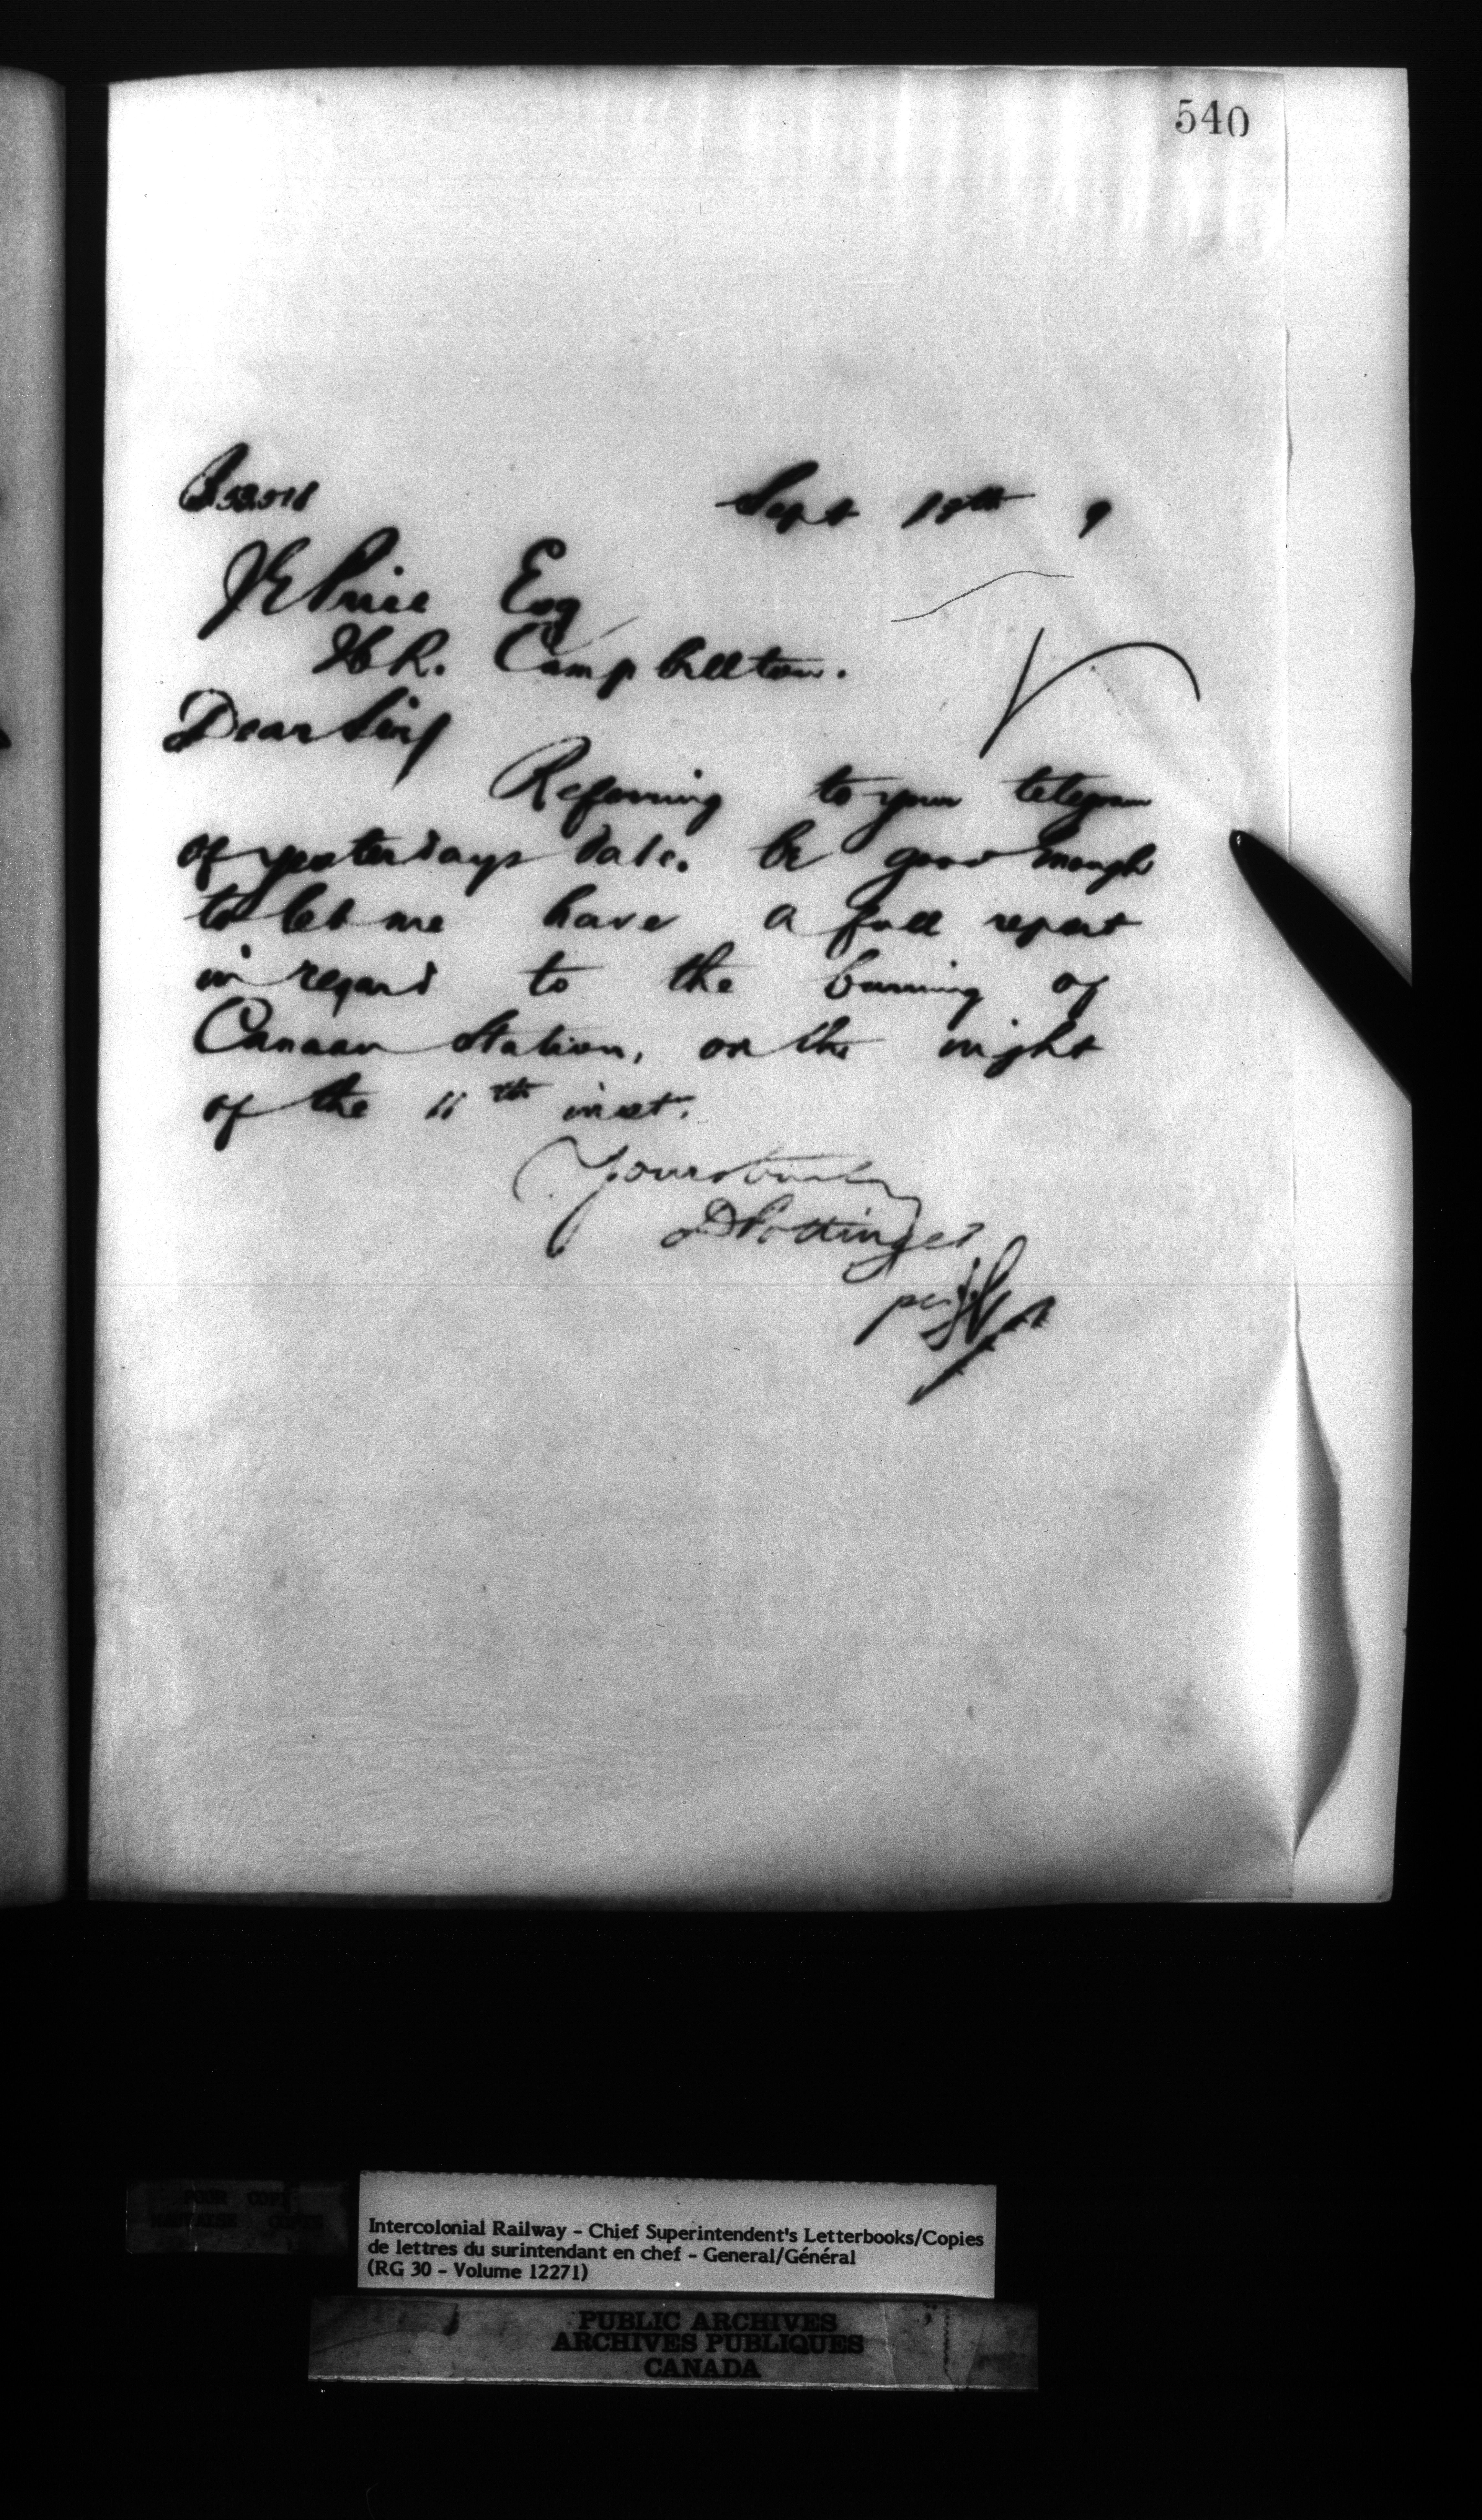 540
Sept 9
Price Esq
Campbellton.
Dear Sir
Referring to your telegram
of yesterdays date. be good enough
to let me have a full report
in regard to the burning of
Canaan Station, on the night
of the 11th inst.
Yours truly
D Pottinger
per
Intercolonial Railway - Chief Superintendent's Letterbooks/Copies
de lettres du surintendant en chef - General/Général
(RG 30 - Volume 12271)
PUBLIC ARCHIVES
ARCHIVES PUBLIQUES
CANADA